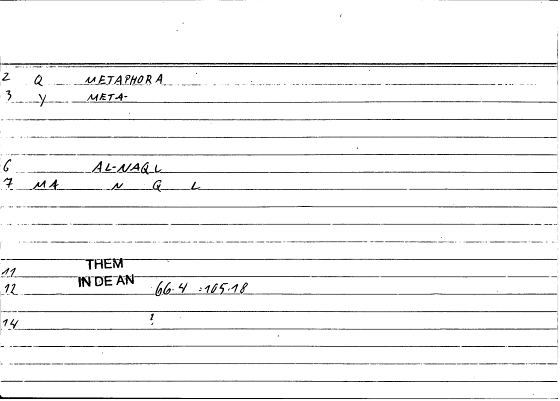 2 Q METAPHORA
3 Y META-
6 AL-NAQL
7 MA N Q L
11 THEM
12 IN DE AN 66.4 :105.18
14 !